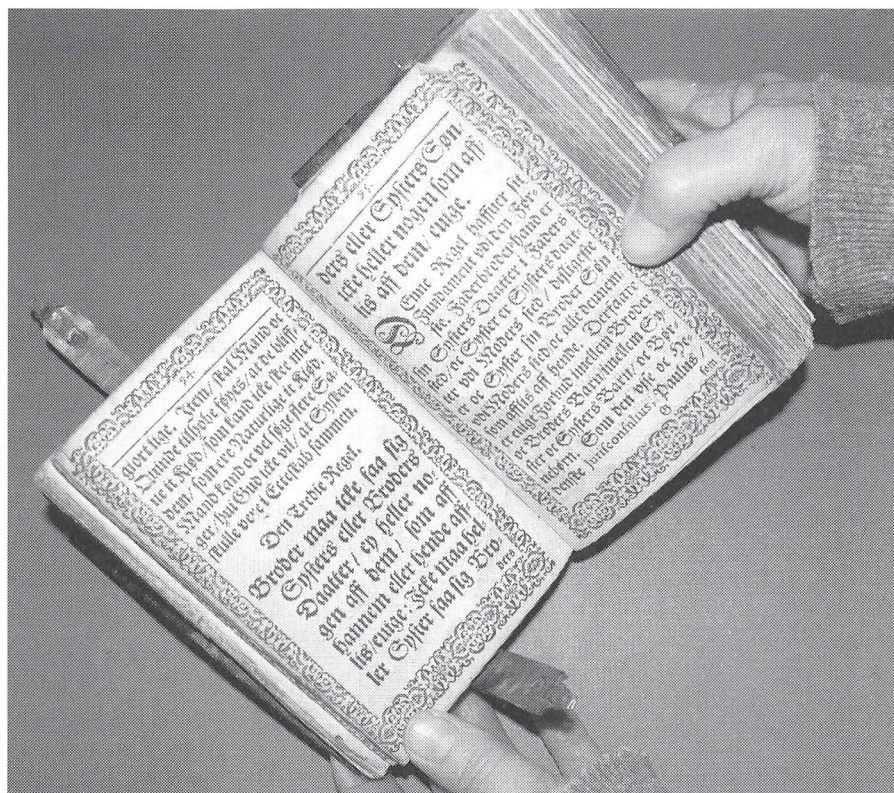 24.
giort sige. Item/ skal Mand oc
Quinde tilhobe føyes/ at de bliff-
ue it Kiød/ som kand icke skee met
dem/ som ere Naturlige it Kiød/
Mand kand oc vel sige flere Sa-
ger/ hui Gud icke vil/ at Syster
skulle være i Ecteskab sammen.
Den Tredie Regel.
Broder maa icke faa sig
Systers eller Broders
Daatter/ ey heller no-
gen aff dem/ som aff
hannem eller hende aff-
lis/ euige: Icke maa hel-
ler Syster faa sig Bro-
ders
25.
ders eller Systers Søn/
icke heller nogen som aff-
lis aff dem/ euige.
DEnne Regel haffuer sit
Fundament vdi den Før-
ste. er
sin Systers Daatter i Faders
sted/ oc Syster er Systers daat-
ter vdi Moders sted/ disligeste
er oc Syster sin Broder Søn
vdi Moders sted oc alle dennem
som afflis aff hende. Derfaare
er euigt Forbud imellem Broder
oc Broders Barn/ imellem Sy-
ster oc Systers Barn/ oc Bør-
nebørn. Som det vise oc He-
denske Jurisconsulus, Paulus/
G som